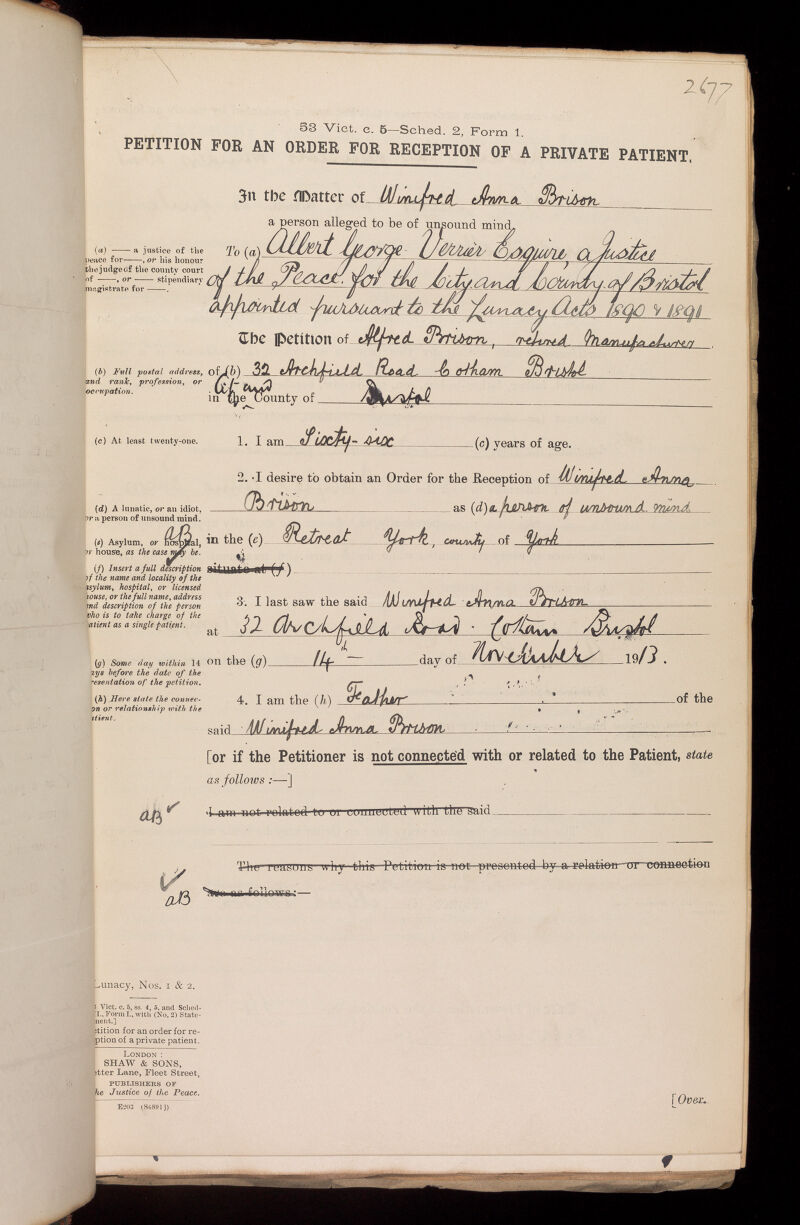 2677
53 Vict. c. 5—Sched. 2, Form 1.
PETITION FOR AN ORDER FOR RECEPTION OF A PRIVATE PATIENT.
In the Matter of Winifred Anna Brison
a person alleged to be of unsound mind.
(a) —— a justice of the
peace for——, or his honour
the judge of the county court
of ——, or —— stipendiary
magistrate for ——.
To (a) Albert George Verrier Esquire, a Justice
of the Peace for the City and County of Bristol
appointed pursuant to the Lunacy Acts 1890 & 1891
The Petition of Alfred Brison, retired Manufacturer.
(b) Full postal address,
and rank, profession, or
occupation.
of (b) 32 Archfield Road Cotham Bristol
City and
in the County of Bristol
(c) At least twenty-one.
1. I am Sixty-six (c) years of age.
2. I desire to obtain an Order for the Reception of Winifred Anna
(d) A lunatic, or an idiot,
or a person of unsound mind.
Brison as (d) a person of unsound mind
(e) Asylum, or hospital,
or house, as the case may be.
AB
in the (e) Retreat York, county of York
(f) Insert a full description
of the name and locality of the
asylum, hospital, or licensed
house, or the full name, address
and description of the person
who is to take charge of the
patient as a single patient.
situate at (f)
3. I last saw the said Winifred Anna Brison
at 32 Archfield Road Cotham Bristol
(g) Some day within 14
days before the date of the
presentation of the petition.
on the (g) 14th day of November 1913.
(h) Here state the connec-
tion or relationship with the
patient.
4. I am the (h) Father of the
said Winifred Anna Brison
[or if the Petitioner is not connected with or related to the Patient, state
as follows :—]
AB
I am not related to or connected with the said
The reasons why this Petition is not presented by a relation or connection
AB
are as follows:—
Lunacy, Nos. 1 & 2.
Vict. c. 5, ss. 4, 5, and Sched-
I., Form I., with (No. 2) State-
ment.]
etition for an order for re-
ption of a private patient.
LONDON :
SHAW & SONS,
etter Lane, Fleet Street,
PUBLISHERS OF
he Justice of the Peace.
[Over.